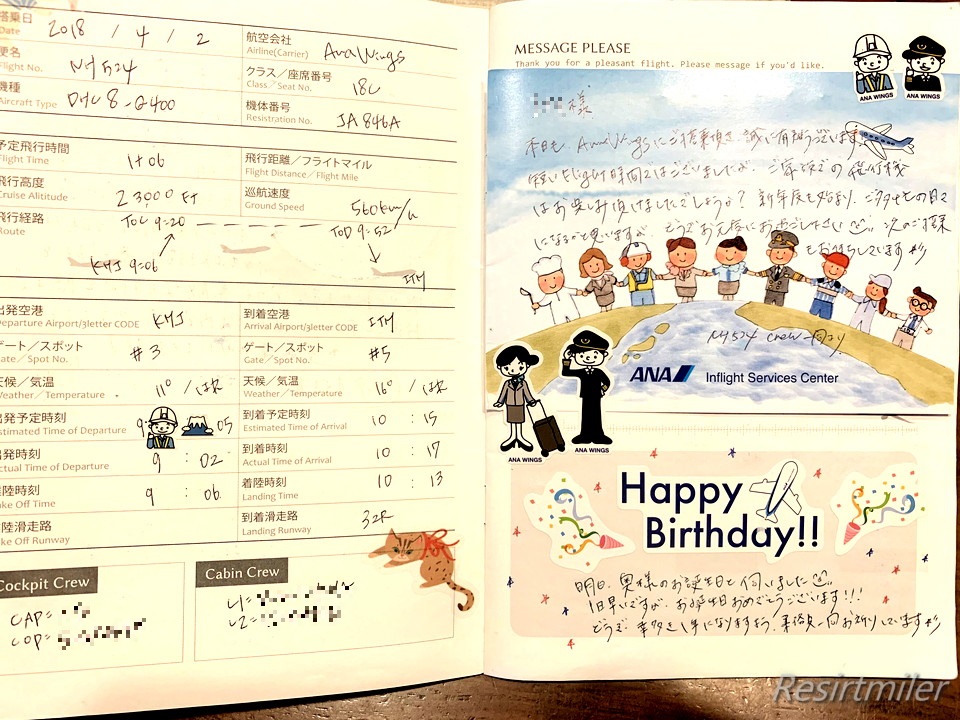 搭乗日 Date 2018 / 4 / 2
航空会社 Airline(Carrier) AnaWings
便名 Flight No. NH524
クラス／座席番号 Class／Seat No. 18C
機種 Aircraft Type DHC8-Q400
機体番号 Resistration No. JA846A
予定飛行時間 Flight Time 1+06
飛行距離／フライトマイル Flight Distance／Flight Mile
飛行高度 Cruise Alititude 23000FT
巡航速度 Ground Speed 560km/h
飛行経路 Route
TOC 9:20 TOD 9:52
KMJ 9:06 ITM
出発空港 Departure Airport/3letter CODE KMJ
到着空港 Arrival Airport/3letter CODE ITM
ゲート／スポット Gate／Spot No. #3
ゲート／スポット Gate／Spot No. #5
天候／気温 Weather／Temperature 11° / はれ
天候／気温 Weather／Temperature 16° / はれ
出発予定時刻 Estimated Time of Departure 9: 05
到着予定時刻 Estimated Time of Arrival 10 : 15
出発時刻 Actual Time of Departure 9 : 02
到着時刻 Actual Time of Arrival 10 : 17
離陸時刻 Take Off Time 9 : 06
着陸時刻 Landing Time 10 : 13
離陸滑走路 Take Off Runway
到着滑走路 Landing Runway 32R
Cockpit Crew
CAP=
COP=
Cabin Crew
L1=
L2=
MESSAGE PLEASE
Thank you for a pleasant flight. Please message if you'd like.
ANA WINGS ANA WINGS
様
本日も、AnaWingsにご搭乗頂き誠に有難うございます。
短いFlight時間ではございましたが、ご家族での旅行
はお楽しみ頂けましたでしょうか？ 新年度も始まり、ご多忙の日々
になるかと思いますが、どうぞお元気にお過ごしください 次のご搭乗
をお待ちしています
NH524 crew一同より
ANA Inflight Services Center
ANA WINGS ANA WINGS
Happy
Birthday!!
明日、奥様のお誕生日と伺いました
1日早いですが、お誕生日おめでとうございます!!!
どうぞ 幸多き1年になりますよう、乗務員一同お祈りしています
Resirtmiler